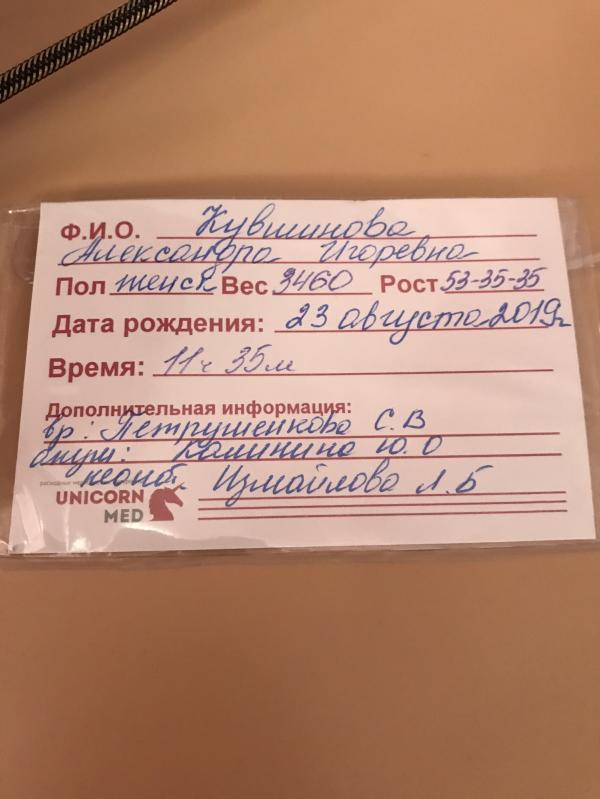 Ф.И.О. Кувшинова
Александра Игоревна
Пол женск Вес 3460 Рост 53-35-35
Дата рождения: 23 августа 2019г
Время: 11ч 35м
Дополнительная информация:
вр: Петрушенкова С.В
акуш: Калинина Ю.О
неонат. Измайлова Л.Б
UNICORN
MED